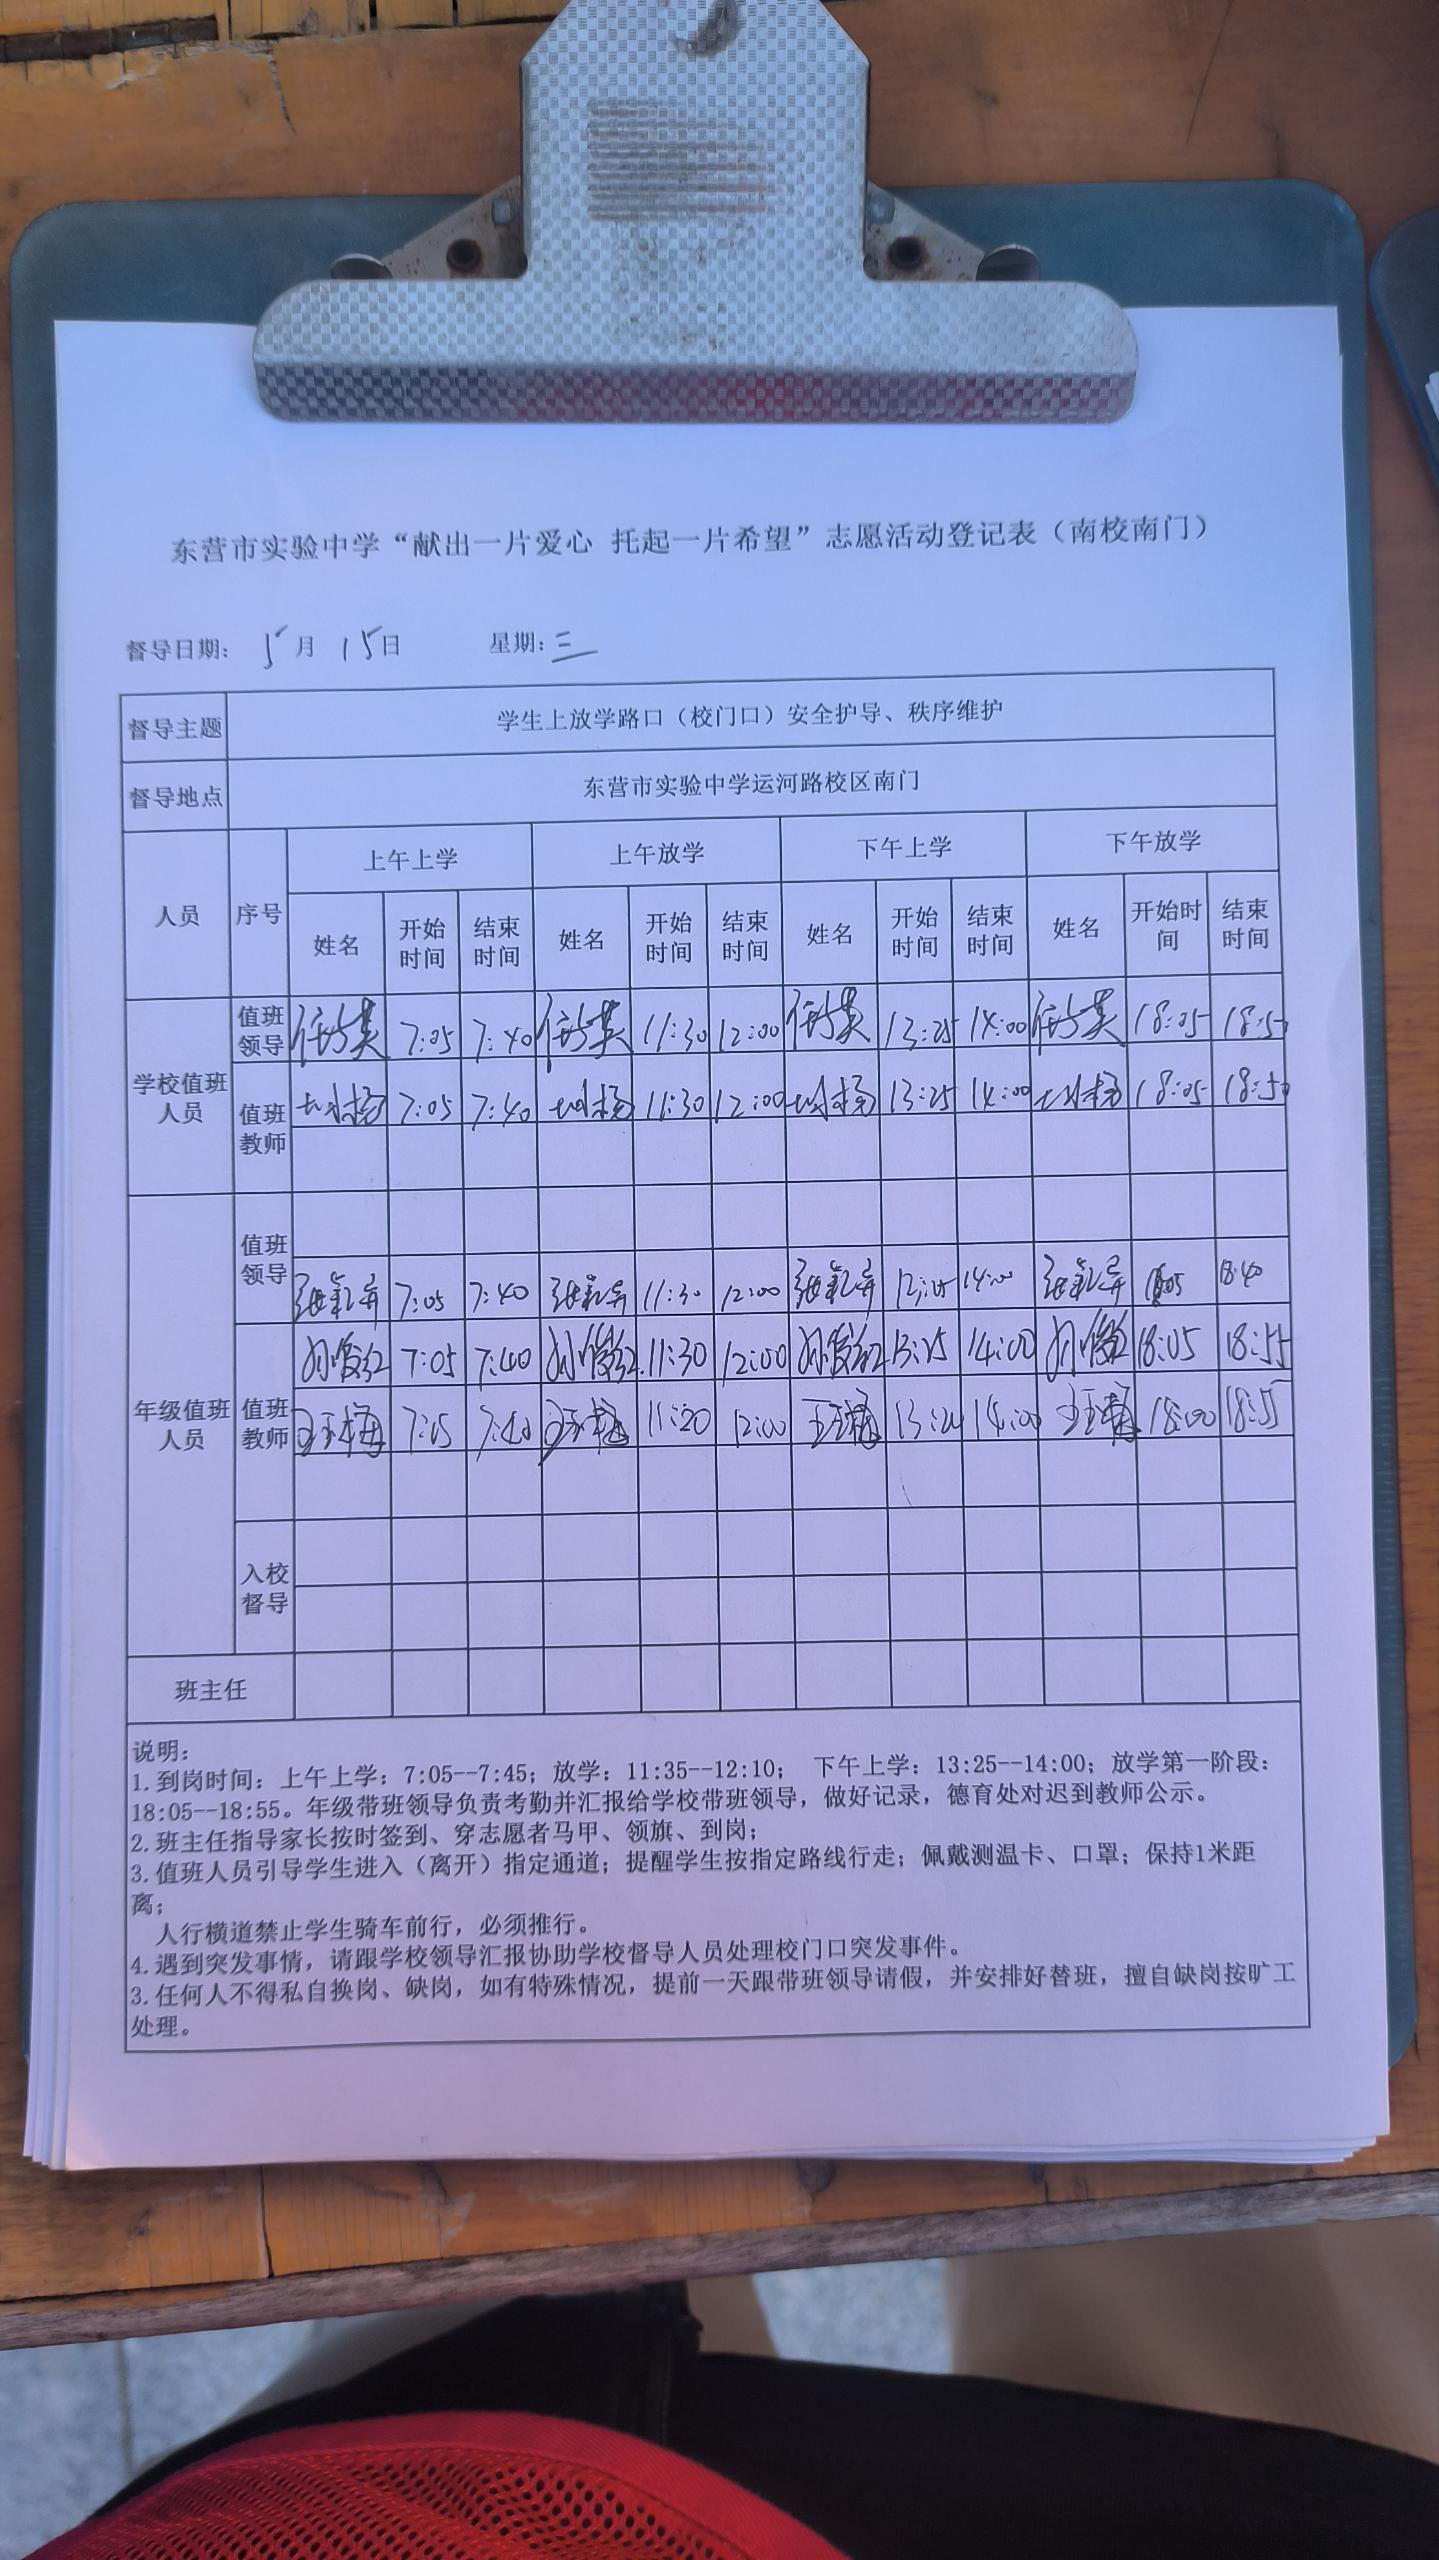 东营市实验中学“献出一片爱心 托起一片希望”志愿活动登记表（南校南门）
督导日期： 5月 15日 星期：三
督导主题 学生上放学路口（校门口）安全护导、秩序维护
督导地点 东营市实验中学运河路校区南门
人员 序号 上午上学 上午放学 下午上学 下午放学
姓名 开始时间 结束时间 姓名 开始时间 结束时间 姓名 开始时间 结束时间 姓名 开始时间 结束时间
学校值班人员 值班领导 7:05 7:40 11:30 12:00 13:25 14:00 18:05 18:50
值班教师 7:05 7:40 11:30 12:00 13:25 14:00 18:05 18:50
年级值班人员 值班领导
7:05 7:40 11:30 12:00 14:00 18:40
值班教师 7:05 7:40 11:30 12:00 13:25 14:00 18:05 18:55
王玉梅 7:15 7:40 王玉梅 11:20 12:00 王玉梅 13:20 14:00 王玉梅 18:00 18:55
入校督导
班主任
说明：
1.到岗时间：上午上学：7:05--7:45；放学：11:35--12:10； 下午上学：13:25--14:00；放学第一阶段：
18:05--18:55。年级带班领导负责考勤并汇报给学校带班领导，做好记录，德育处对迟到教师公示。
2.班主任指导家长按时签到、穿志愿者马甲、领旗、到岗；
3.值班人员引导学生进入（离开）指定通道；提醒学生按指定路线行走；佩戴测温卡、口罩；保持1米距
离；
人行横道禁止学生骑车前行，必须推行。
4.遇到突发事情，请跟学校领导汇报协助学校督导人员处理校门口突发事件。
3.任何人不得私自换岗、缺岗，如有特殊情况，提前一天跟带班领导请假，并安排好替班，擅自缺岗按旷工
处理。